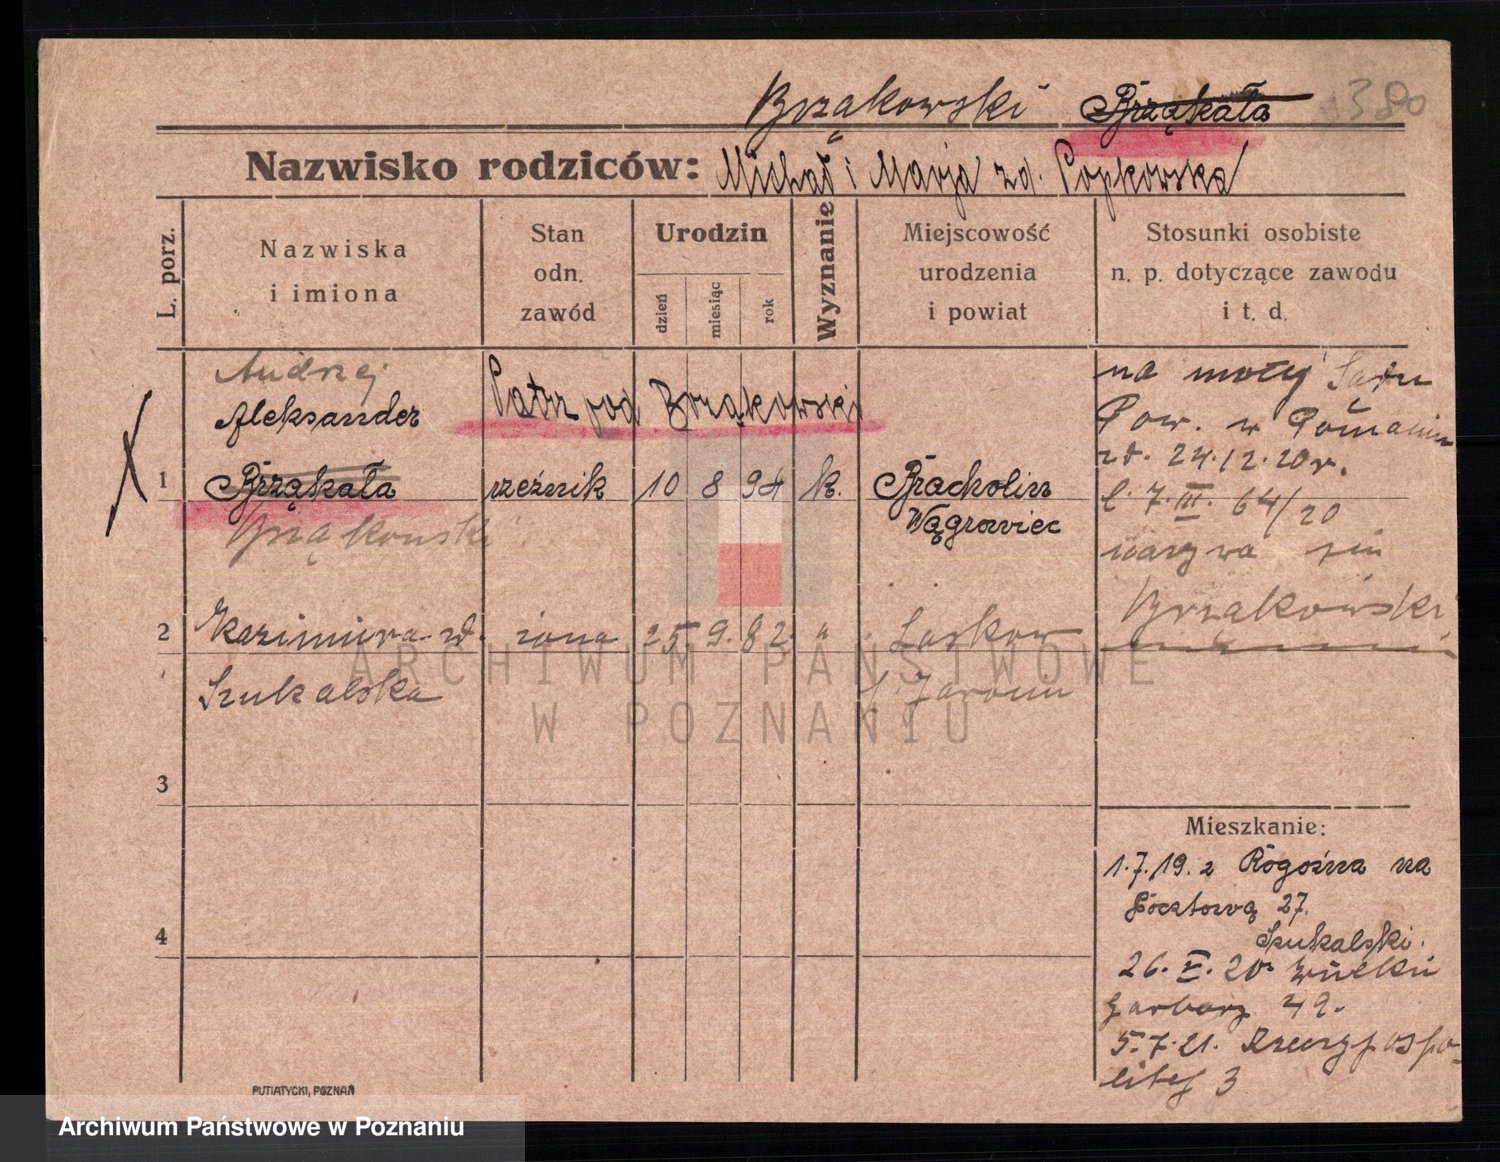 Brząkowski Brząkała 380
Nazwisko rodziców: Michał i Marja zd. Popkowska
L. porz.
Nazwiska
i imiona
Stan
odn.
zawód
Urodzin
dzień
miesiąc
rok
Wyznanie
Miejscowość
urodzenia
i powiat
Stosunki osobiste
n. p. dotyczące zawodu
i t. d.
Andrzej
Aleksander
Patrz pod Brząkowski
1 Brząkała rzeźnik 10 8 94 k. Bracholin
Wągrowiec
Brząkowski
na mocy Sądu
Pow. w Poznaniu
zd. 24.12.20r.
l. 7. III. 64/20
nazywa się
Brząkowski
2 Kazimiera zd. żona 25 9. 82 " Laskow
Szukalska
p. Jarocin
3
4
Mieszkanie:
1.7.19. z Rogoźna na
Pocztową 27.
Szukalski.
26. V. 20. Wielkie
Garbary 49.
5.7.21. Rzeczypospo-
litej 3
PUTIATYCKI, POZNAŃ
ARCHIWUM PAŃSTWOWE
W POZNANIU
Archiwum Państwowe w Poznaniu